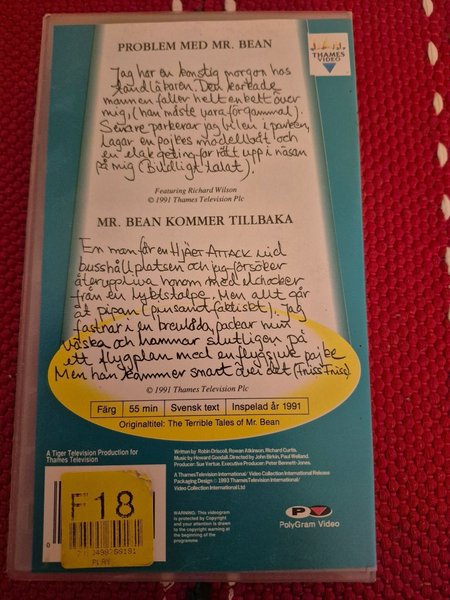 PROBLEM MED MR. BEAN
THAMES
VIDEO
Jag har en konstig morgon hos
tandläkaren. Den korkade
mannen faller helt enkelt över
mig, (han måste vara förgammal).
Senare parkerar jag bilen i parken,
lagar en pojkes modellbåt och
en elak geting far rätt upp i näsan
på mig (Bildligt talat).
Featuring Richard Wilson
© 1991 Thames Television Plc
MR. BEAN KOMMER TILLBAKA
En man får en HJÄRT ATTACK vid
busshållplatsen och jag försöker
återuppliva honom med elchocker
från en lyktstolpe. Men allt går
åt pipan (pinsamt faktiskt). Jag
fastnar i en brevlåda, packar min
väska och hamnar slutligen på
ett flygplan med en flygsjuk pojke
Men han kommer snart över det (Fniss Fniss)
© 1991 Thames Television Plc
Färg 55 min Svensk text Inspelad år 1991
Originaltitel: The Terrible Tales of Mr. Bean
A Tiger Television Production for
Thames Television
Written by Robin Driscoll, Rowan Atkinson, Richard Curtis.
Music by Howard Goodall. Directed by John Birkin, Paul Weiland.
Producer: Sue Vertue. Executive Producer: Peter Bennett-Jones.
A Thames Television International/ Video Collection International Release
Packaging Design © 1993 Thames Television International/
Video Collection International Ltd
WARNING: This videogram
is protected by Copyright
and your attention is drawn
to the copyright warning at
the beginning of the
programme
PolyGram Video
F18
PLAY